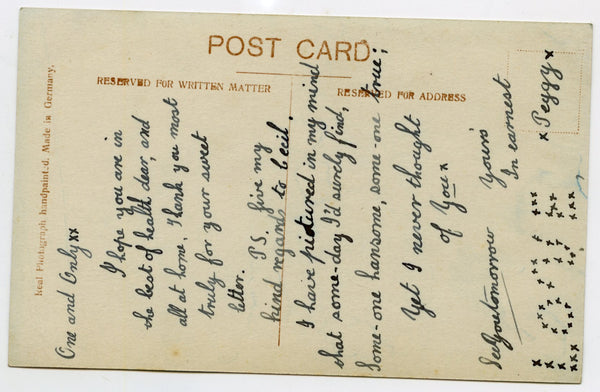 POST CARD
RESERVED FOR WRITTEN MATTER
RESERVED FOR ADDRESS
Real Photograph handpainted. Made in Germany.
One and Only xx
I hope you are in
the best of health dear, and
all at home, thank you most
truly for your sweet
letter. P.S. give my
kind regards to Cecil.
I have pictured in my mind
that some-day I'd surely find,
Some-one hansome, some-one true;
Yet I never thought
of You x
See you tomorrow Yours
In earnest
x Peggy x